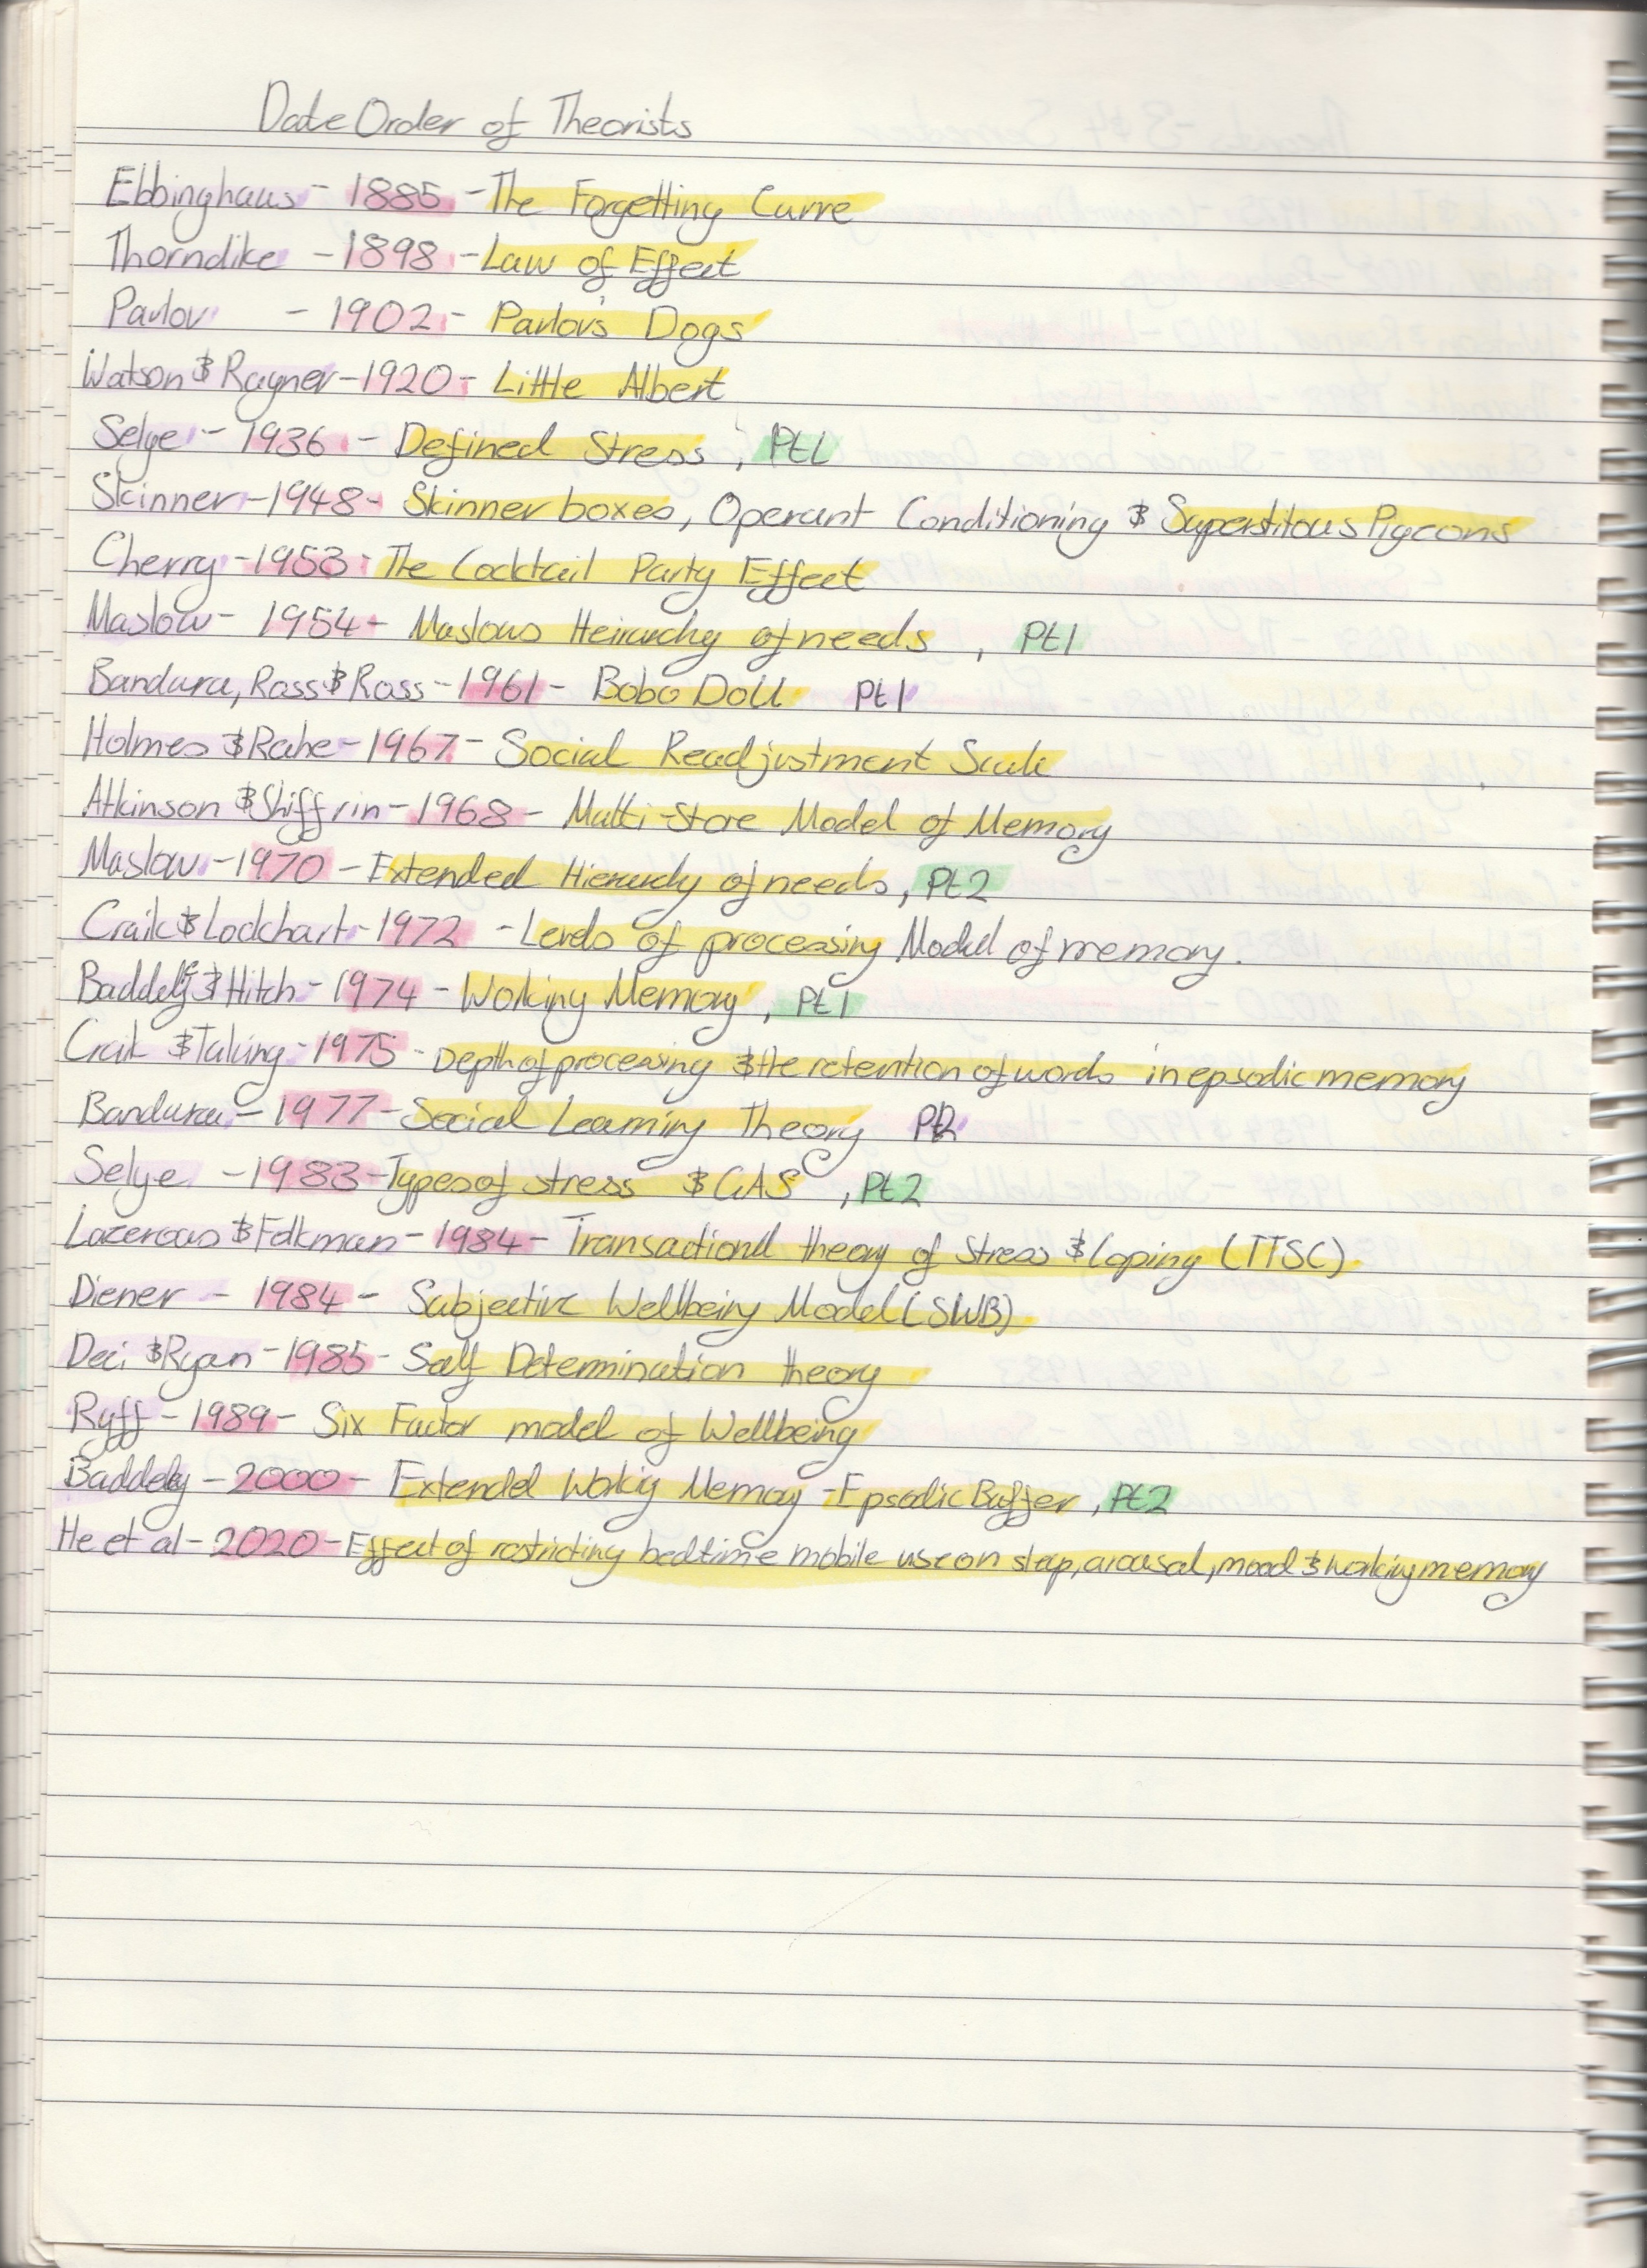 Date Order of Theorists
Ebbinghaus - 1885 - The Forgetting Curve
Thorndike - 1898 - Law of Effect
Pavlov - 1902 - Pavlov's Dogs
Watson & Rayner - 1920 - Little Albert
Selye - 1936 - Defined Stress, Pt1
Skinner - 1948 - Skinner boxes, Operant Conditioning & Superstitous Pigeons
Cherry - 1953 - The Cocktail Party Effect
Maslow - 1954 - Maslows Heirarchy of needs, Pt1
Bandura, Ross & Ross - 1961 - Bobo Doll Pt1
Holmes & Rahe - 1967 - Social Readjustment Scale
Atkinson & Shiffrin - 1968 - Multi-Store Model of Memory
Maslow - 1970 - Extended Hierarchy of needs, Pt2
Craik & Lockhart - 1972 - Levels of processing Model of memory.
Baddely & Hitch - 1974 - Working Memory, Pt1
Craik & Tulving - 1975 - Depth of processing & the retention of words in epsodic memory
Bandura - 1977 - Social Learning Theory Pt2
Selye - 1983 - Types of stress & GAS, Pt2
Lazerous & Folkman - 1984 - Transactional theory of Stress & Coping (TTSC)
Diener - 1984 - Subjective Wellbeing Model (SWB)
Deci & Ryan - 1985 - Self Determination theory
Ryff - 1989 - Six Factor model of Wellbeing
Baddely - 2000 - Extended Working Memory - Epsodic Buffer, Pt2
He et al - 2020 - Effect of restricting bedtime mobile use on sleep, arousal, mood & working memory